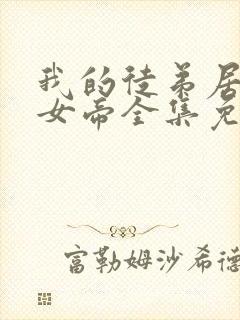 我的徒弟居
女帝全集免
富勒姆沙希德